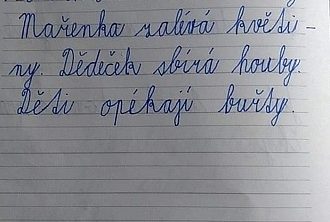 Mařenka zalívá květi-
ny. Dědeček sbírá houby.
Děti opékají buřty.